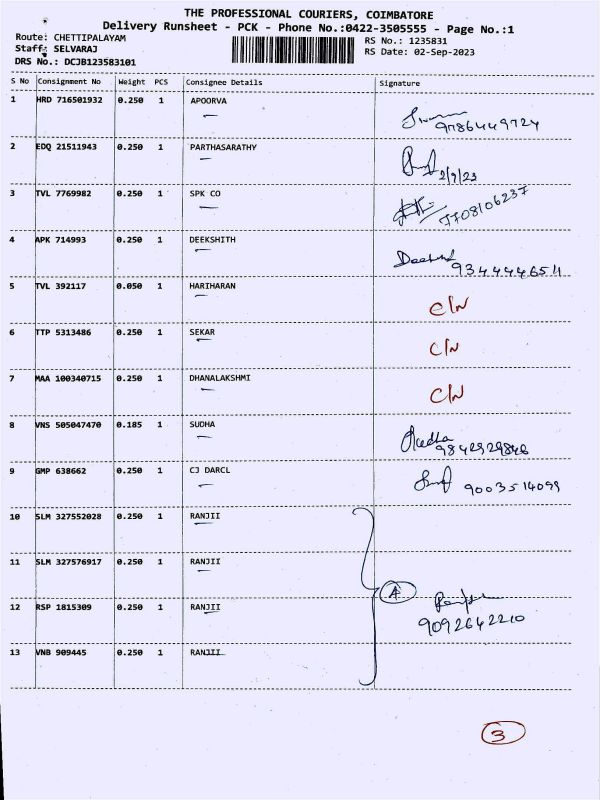 THE PROFESSIONAL COURIERS, COIMBATORE
Delivery Runsheet - PCK - Phone No.:0422-3505555 - Page No.:1
Route: CHETTIPALAYAM
RS No.: 1235831
Staff: SELVARAJ
RS Date: 02-Sep-2023
DRS No.: DCJB123583101
S No Consignment No Weight PCS Consignee Details Signature
1 HRD 716501932 0.250 1 APOORVA
9786449724
2 EDQ 21511943 0.250 1 PARTHASARATHY
2/9/23
3 TVL 7769982 0.250 1 SPK CO
7708106237
4 APK 714993 0.250 1 DEEKSHITH
9344446511
5 TVL 392117 0.050 1 HARIHARAN
C/N
6 TTP 5313486 0.250 1 SEKAR
C/N
7 MAA 100340715 0.250 1 DHANALAKSHMI
C/N
8 VNS 505047470 0.185 1 SUDHA
Sudha
9842929846
9 GMP 638662 0.250 1 CJ DARCL
9003514099
10 SLM 327552028 0.250 1 RANJII
11 SLM 327576917 0.250 1 RANJII
4
12 RSP 1815309 0.250 1 RANJII
9092642210
13 VNB 909445 0.250 1 RANJII
3